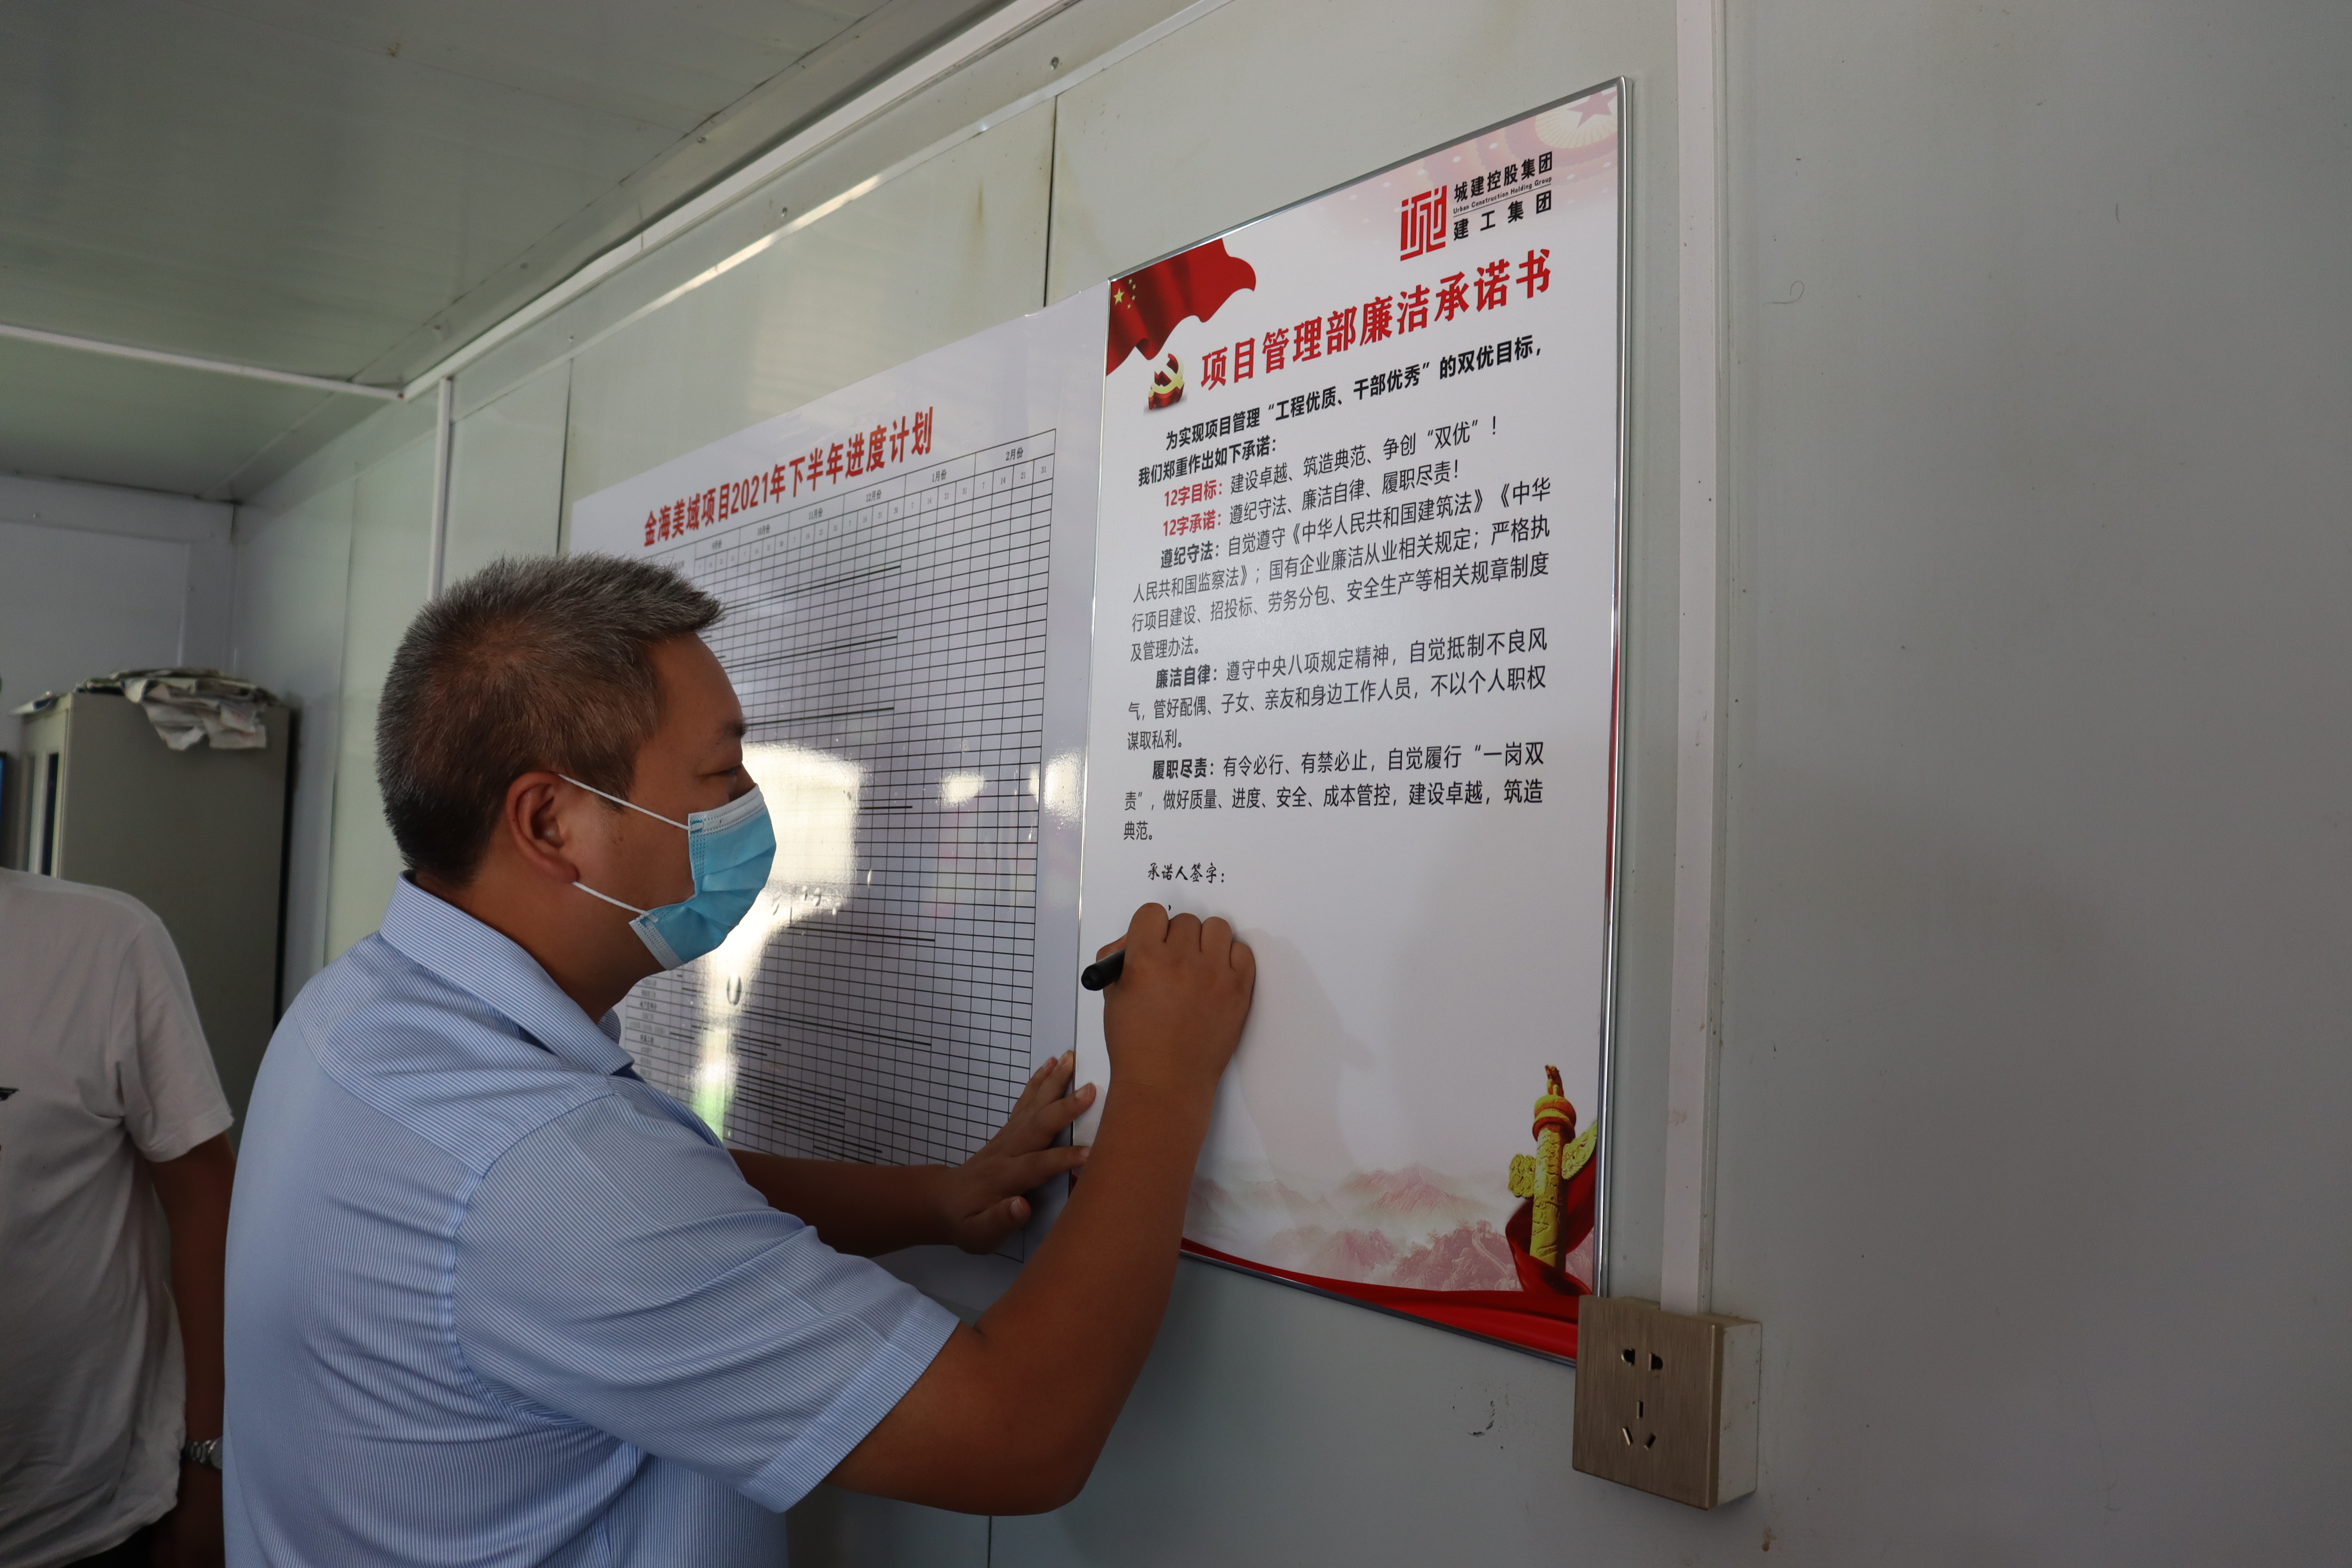 金海美域项目2021年下半年进度计划
9月份 10月份 11月份 12月份 1月份 2月份
7 14 21 31
城建控股集团
Urban Construction Holding Group
建工集团
项目管理部廉洁承诺书
为实现项目管理“工程优质、干部优秀”的双优目标，
我们郑重作出如下承诺：
12字目标：建设卓越、筑造典范、争创“双优”！
12字承诺：遵纪守法、廉洁自律、履职尽责！
遵纪守法：自觉遵守《中华人民共和国建筑法》《中华
人民共和国监察法》；国有企业廉洁从业相关规定；严格执
行项目建设、招投标、劳务分包、安全生产等相关规章制度
及管理办法。
廉洁自律：遵守中央八项规定精神，自觉抵制不良风
气，管好配偶、子女、亲友和身边工作人员，不以个人职权
谋取私利。
履职尽责：有令必行、有禁必止，自觉履行“一岗双
责”，做好质量、进度、安全、成本管控，建设卓越，筑造
典范。
承诺人签字：